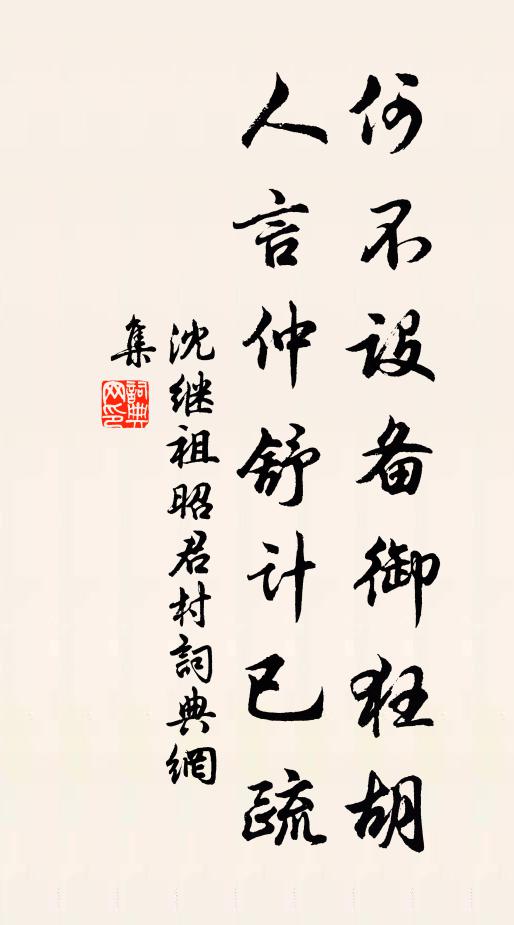 何不设备御狂胡
人言仲舒计已疏
沈继祖昭君村詞典網
集
詞典
网印